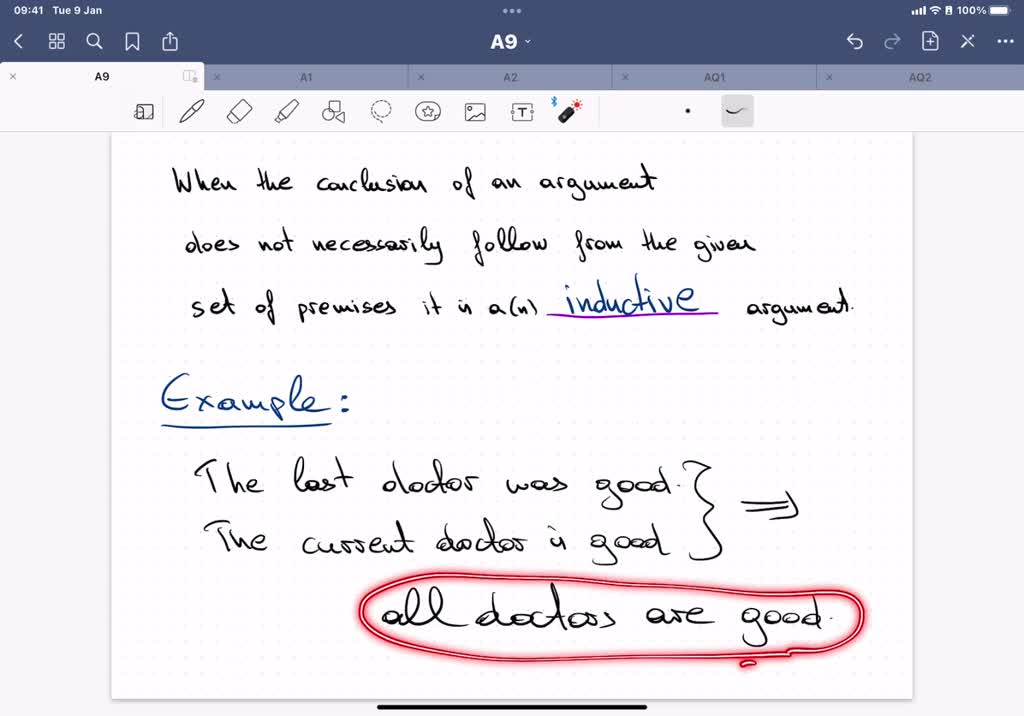 09:41 Tue 9 Jan
100%
A9
A9
A1
A2
AQ1
AQ2
T
When the conclusion of an argument
does not necessarily follow from the given
set of premises it is a(n) inductive argument.
Example:
The last doctor was good.
The current doctor is good
all doctors are good.